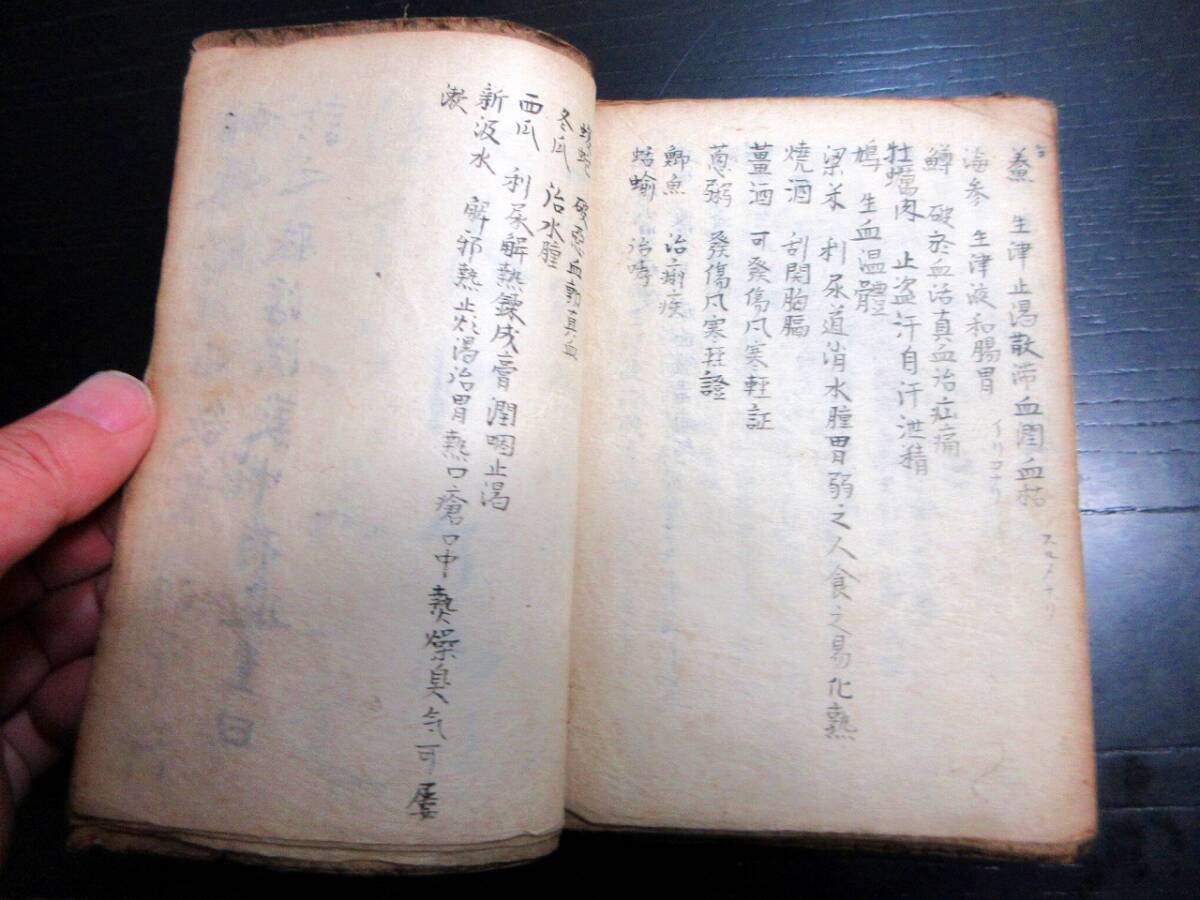 鱉 生津止渇散滞血潤血枯
海参 生津液和腸胃 イリコナリ
鱒 破於血活真血治疝痛
牡蠣肉 止盗汗自汗泄精
鳩 生血温體
粱米 利尿道消水腫胃弱之人食之易化熟
焼酒 刮関胸膈
薑酒 可發傷风寒軽証
葱粥 發傷风寒軽證
鯽魚 治痢疾
蛞蝓 治哮
破惡血動真血
冬瓜 治水腫
西瓜 利尿解熱錬成膏潤咽止渇
新汲水 解邪熱止煩渇治胃熱口瘡口中熱燥臭气可屡
漱